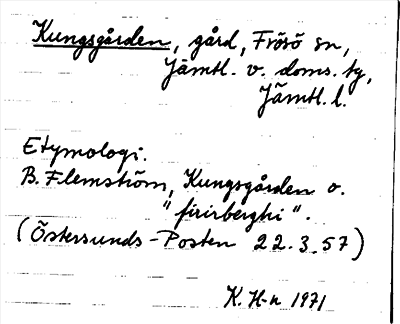 Kungsgården, gård, Frösö sn,
Jämtl. v. doms. tg,
Jämtl. l.
Etymologi.
B. Flemström, Kungsgården o.
"firirberghi".
(Östersunds-Posten 22.3.57)
K. H-n 1971